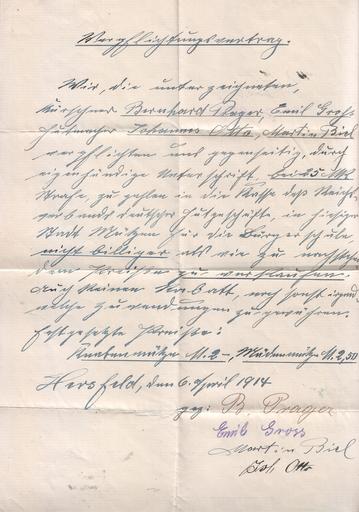 Verpflichtungsvertrag.
Wir, die unterzeichneten,
Kürschner Bernhard Prager, Emil Gross
Hutmacher Johannes Otto, Martin Biel
verpflichten uns gegenseitig, durch
eigenhändige Unterschrift, bei 25 Mk
Strafe, zu zahlen in die Kasse des Reichs-
verbands deutscher Hutgeschäfte, in hiesiger
Stadt Mützen für die Bürgerschule
nicht billiger als wie zu nachstehen
dem Preise zu verkaufen.
Auch keinen Rabatt, noch sonst irgend
welche Zuwendungen zu gewähren.
Festgesetzte Preise:
Knabenmütze M. 2 –, Mädenmütze M. 2,50
Hersfeld, den 6. April 1914
gez: B. Prager
Emil Gross
Martin Biel
Joh. Otto